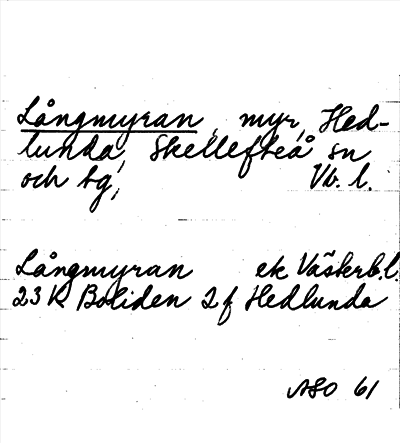 Långmyran, myr, Hed-
lunda, Skellefteå sn
och tg, Vb. l.
Långmyran ek Västerb.l.
23 K Boliden 2f Hedlunda
ASO 61